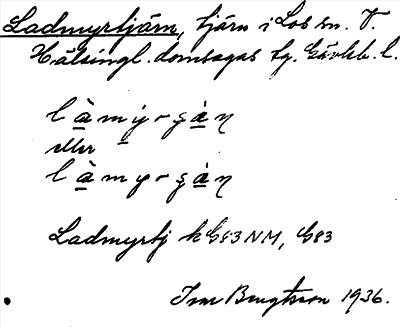 Ladmyrtjärn, tjärn i Los sn. V.
Hälsingl. domsagas tg. Gävleb. l.
l à m ý - ş à n
eller
l à m y - ş à n
Ladmyrtj k G83 NM, G83
Bengtsson 1936.